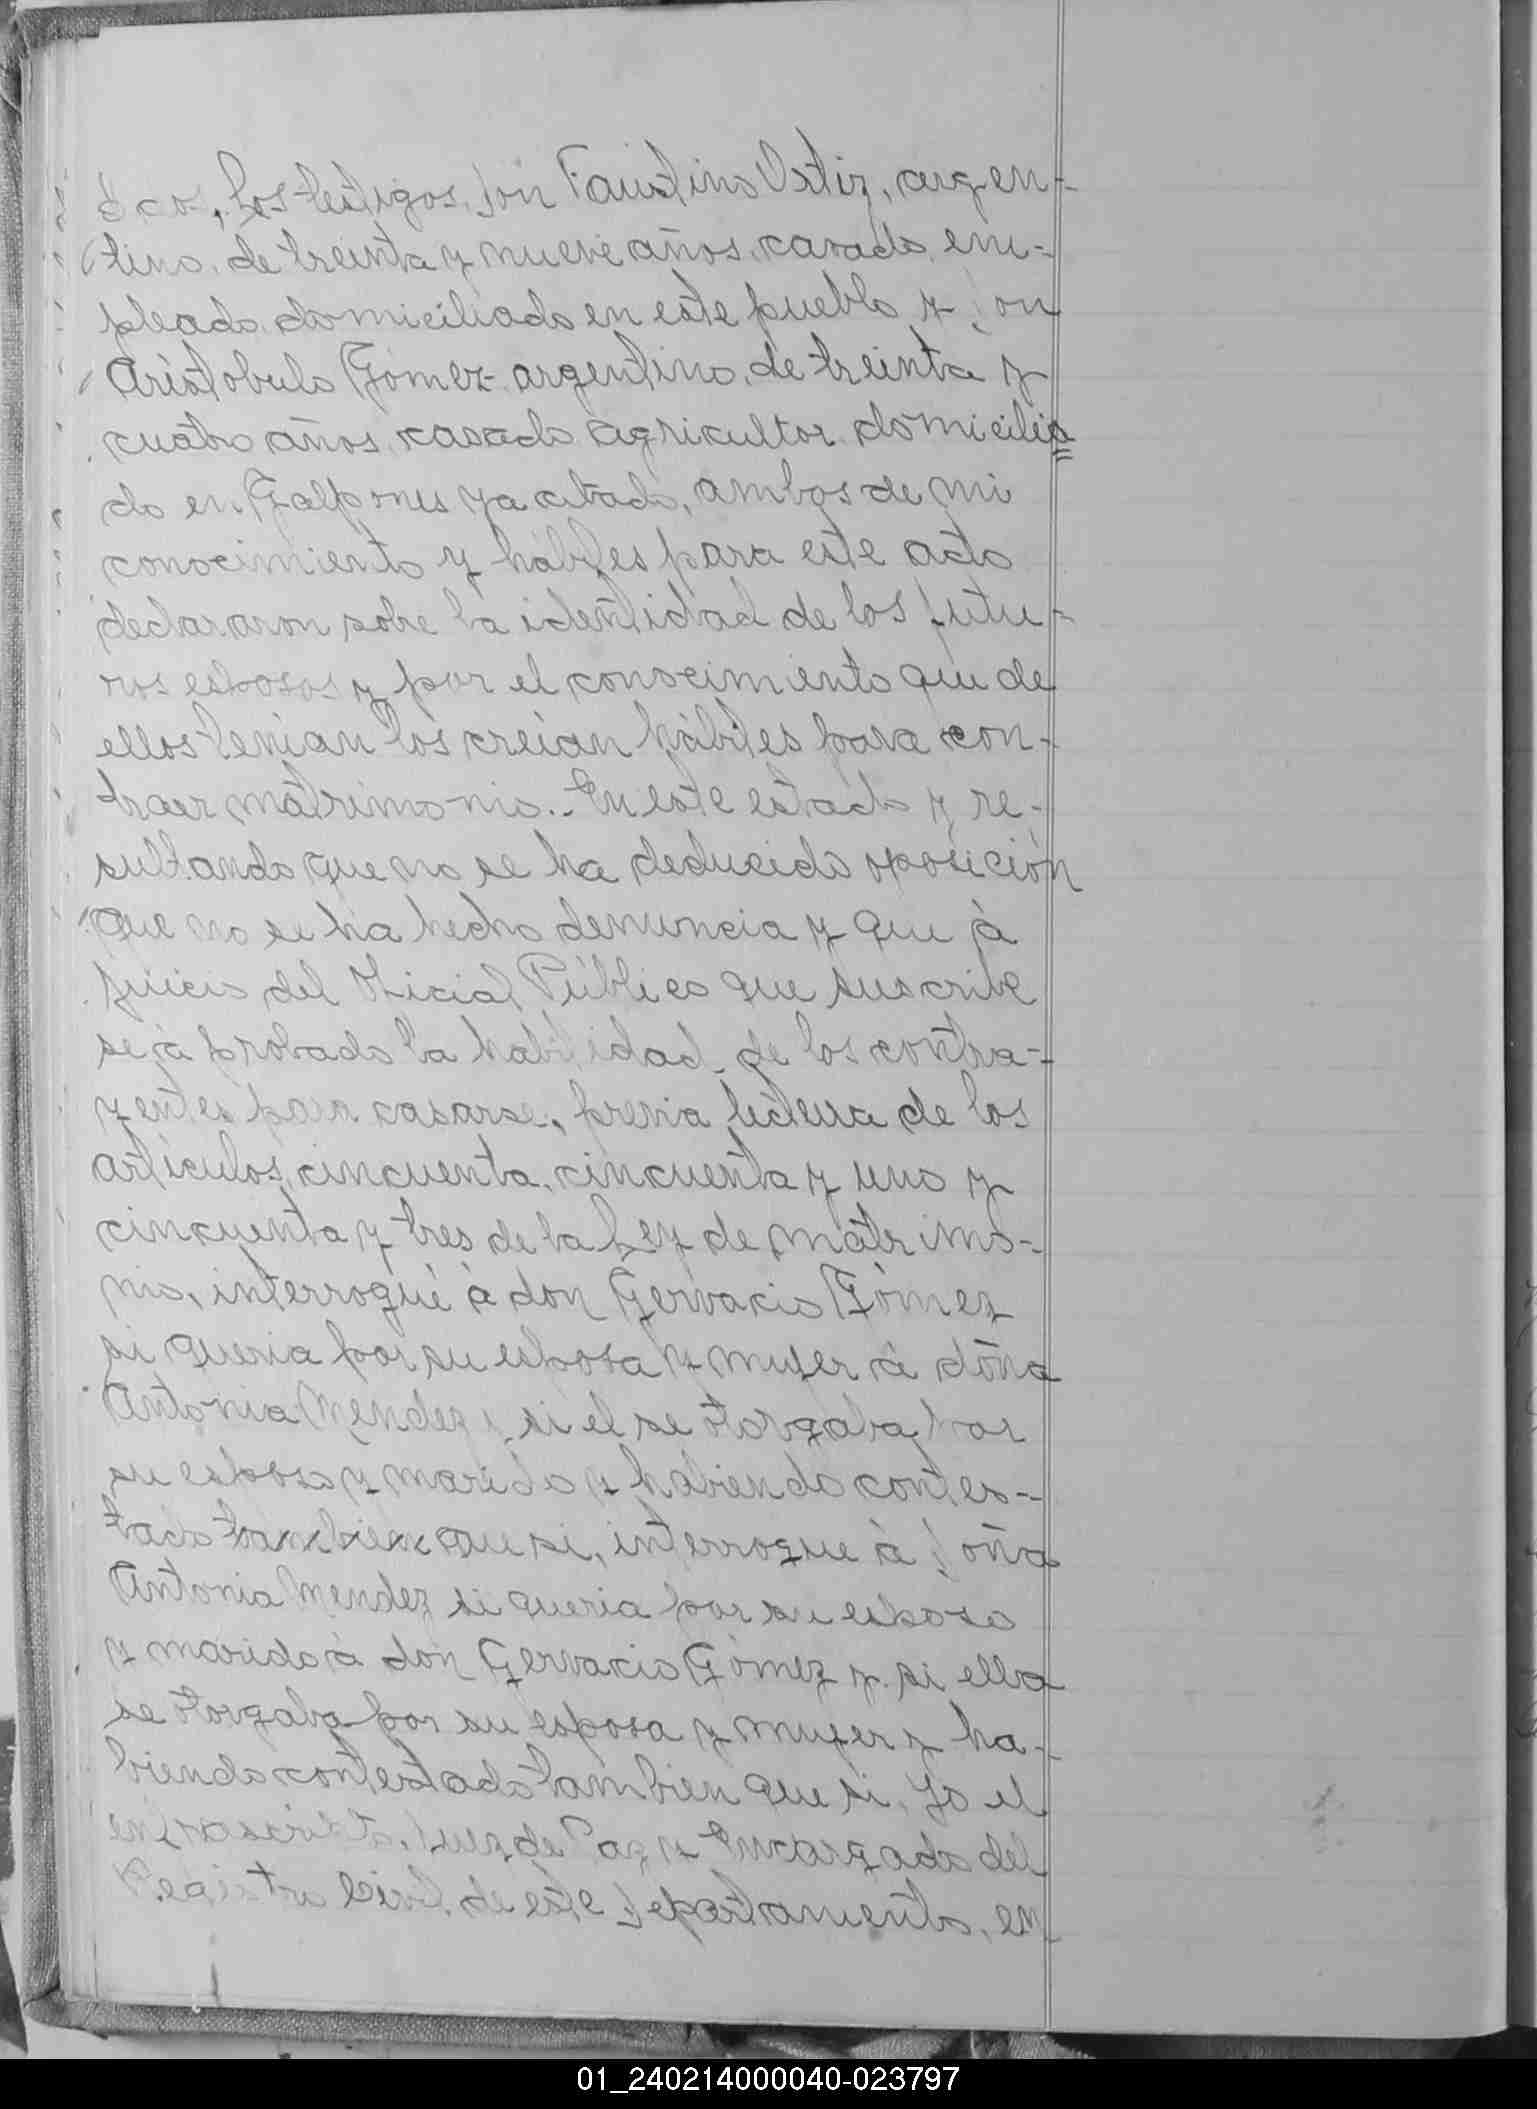 cos, los testigos, don Faustino Ortiz, argen-
tino, de treinta y nueve años, casado, em-
pleado domiciliado en este pueblo y don
Aristobulo Gómez argentino, de treinta y
cuatro años, casado agricultor domicilia
do en Galpones ya citado, ambos de mi
conocimiento y hábiles para este acto
declararon sobre la identidad de los futu-
ros esposos y por el conocimiento que de
ellos tenian los creían hábiles para con-
traer matrimonio.- En este estado y re-
sultando que no se ha deducido oposición
que no se ha hecho denuncia y que à
juicio del Oficial Público que suscribe
se à probado la habilidad de los contra-
yentes para casarse, previa lectura de los
artículos cincuenta, cincuenta y uno y
cincuenta y tres de la Ley de matrimo-
nio, interrogué à don Gervacio Gómez
si queria por su esposa y mujer à doña
Antonia Mendez y si el se otorgaba por
su esposo y marido y habiendo contes-
tado tambien que si, interrogue à doña
Antonia Mendez si queria por su esposo
y marido à don Gervacio Gómez y si ella
se otorgaba por su esposa y mujer y ha-
biendo contestado tambien que si, Yo el
infrascripto, Juez de Paz y Encargado del
Registro Civil de este Departamento, en
01_240214000040-023797